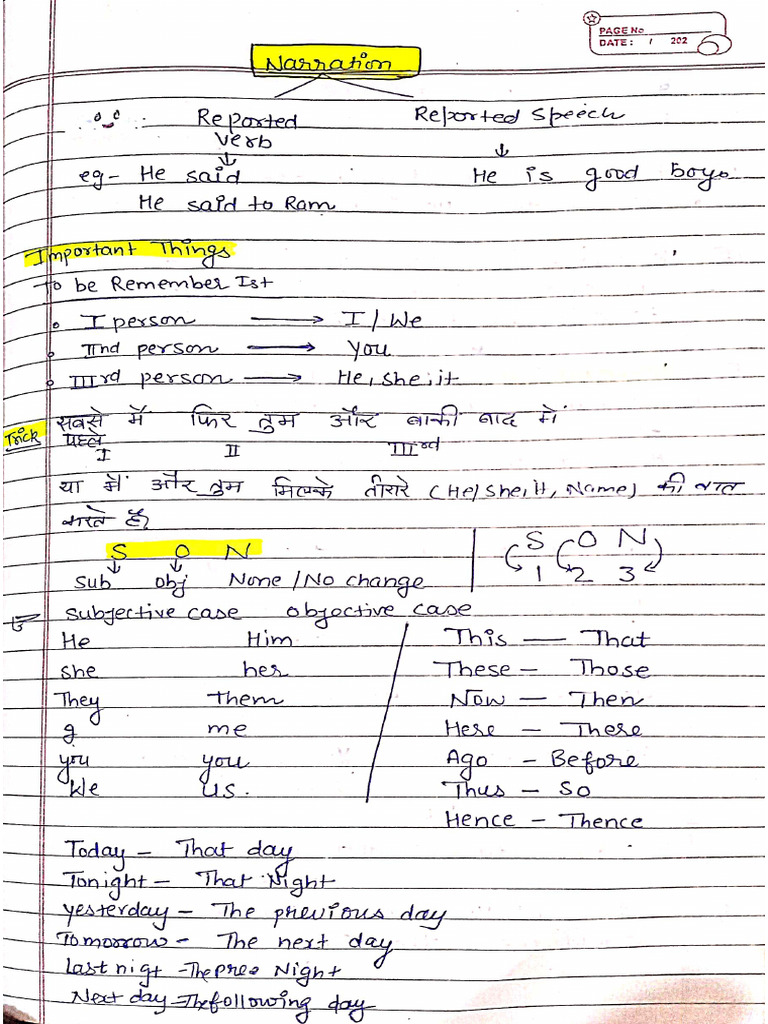 PAGE No
DATE: / 202
Narration
Reported Reported Speech
Verb
eg- He said He is good boy.
He said to Ram
Important Things
To be Remember Ist
I person → I/We
IInd person → You
IIIrd person → He, she, it
Trick सबसे मैं फिर तुम और बाकी बाद में
पहले I II IIIrd
या मैं और तुम मिलके तीसरे (He/She, It, Name) की बात
करते हैं
S O N
Sub obj None/No change
S O N
1 2 3
Subjective case objective case
He Him
she her
They them
I me
you you
We us.
This — That
These - Those
Now - Then
Here - There
Ago - Before
Thus - So
Hence - Thence
Today - That day
Tonight - That Night
Yesterday - The previous day
Tomorrow - The next day
Last nigt - The pre. Night
Next day - The following day